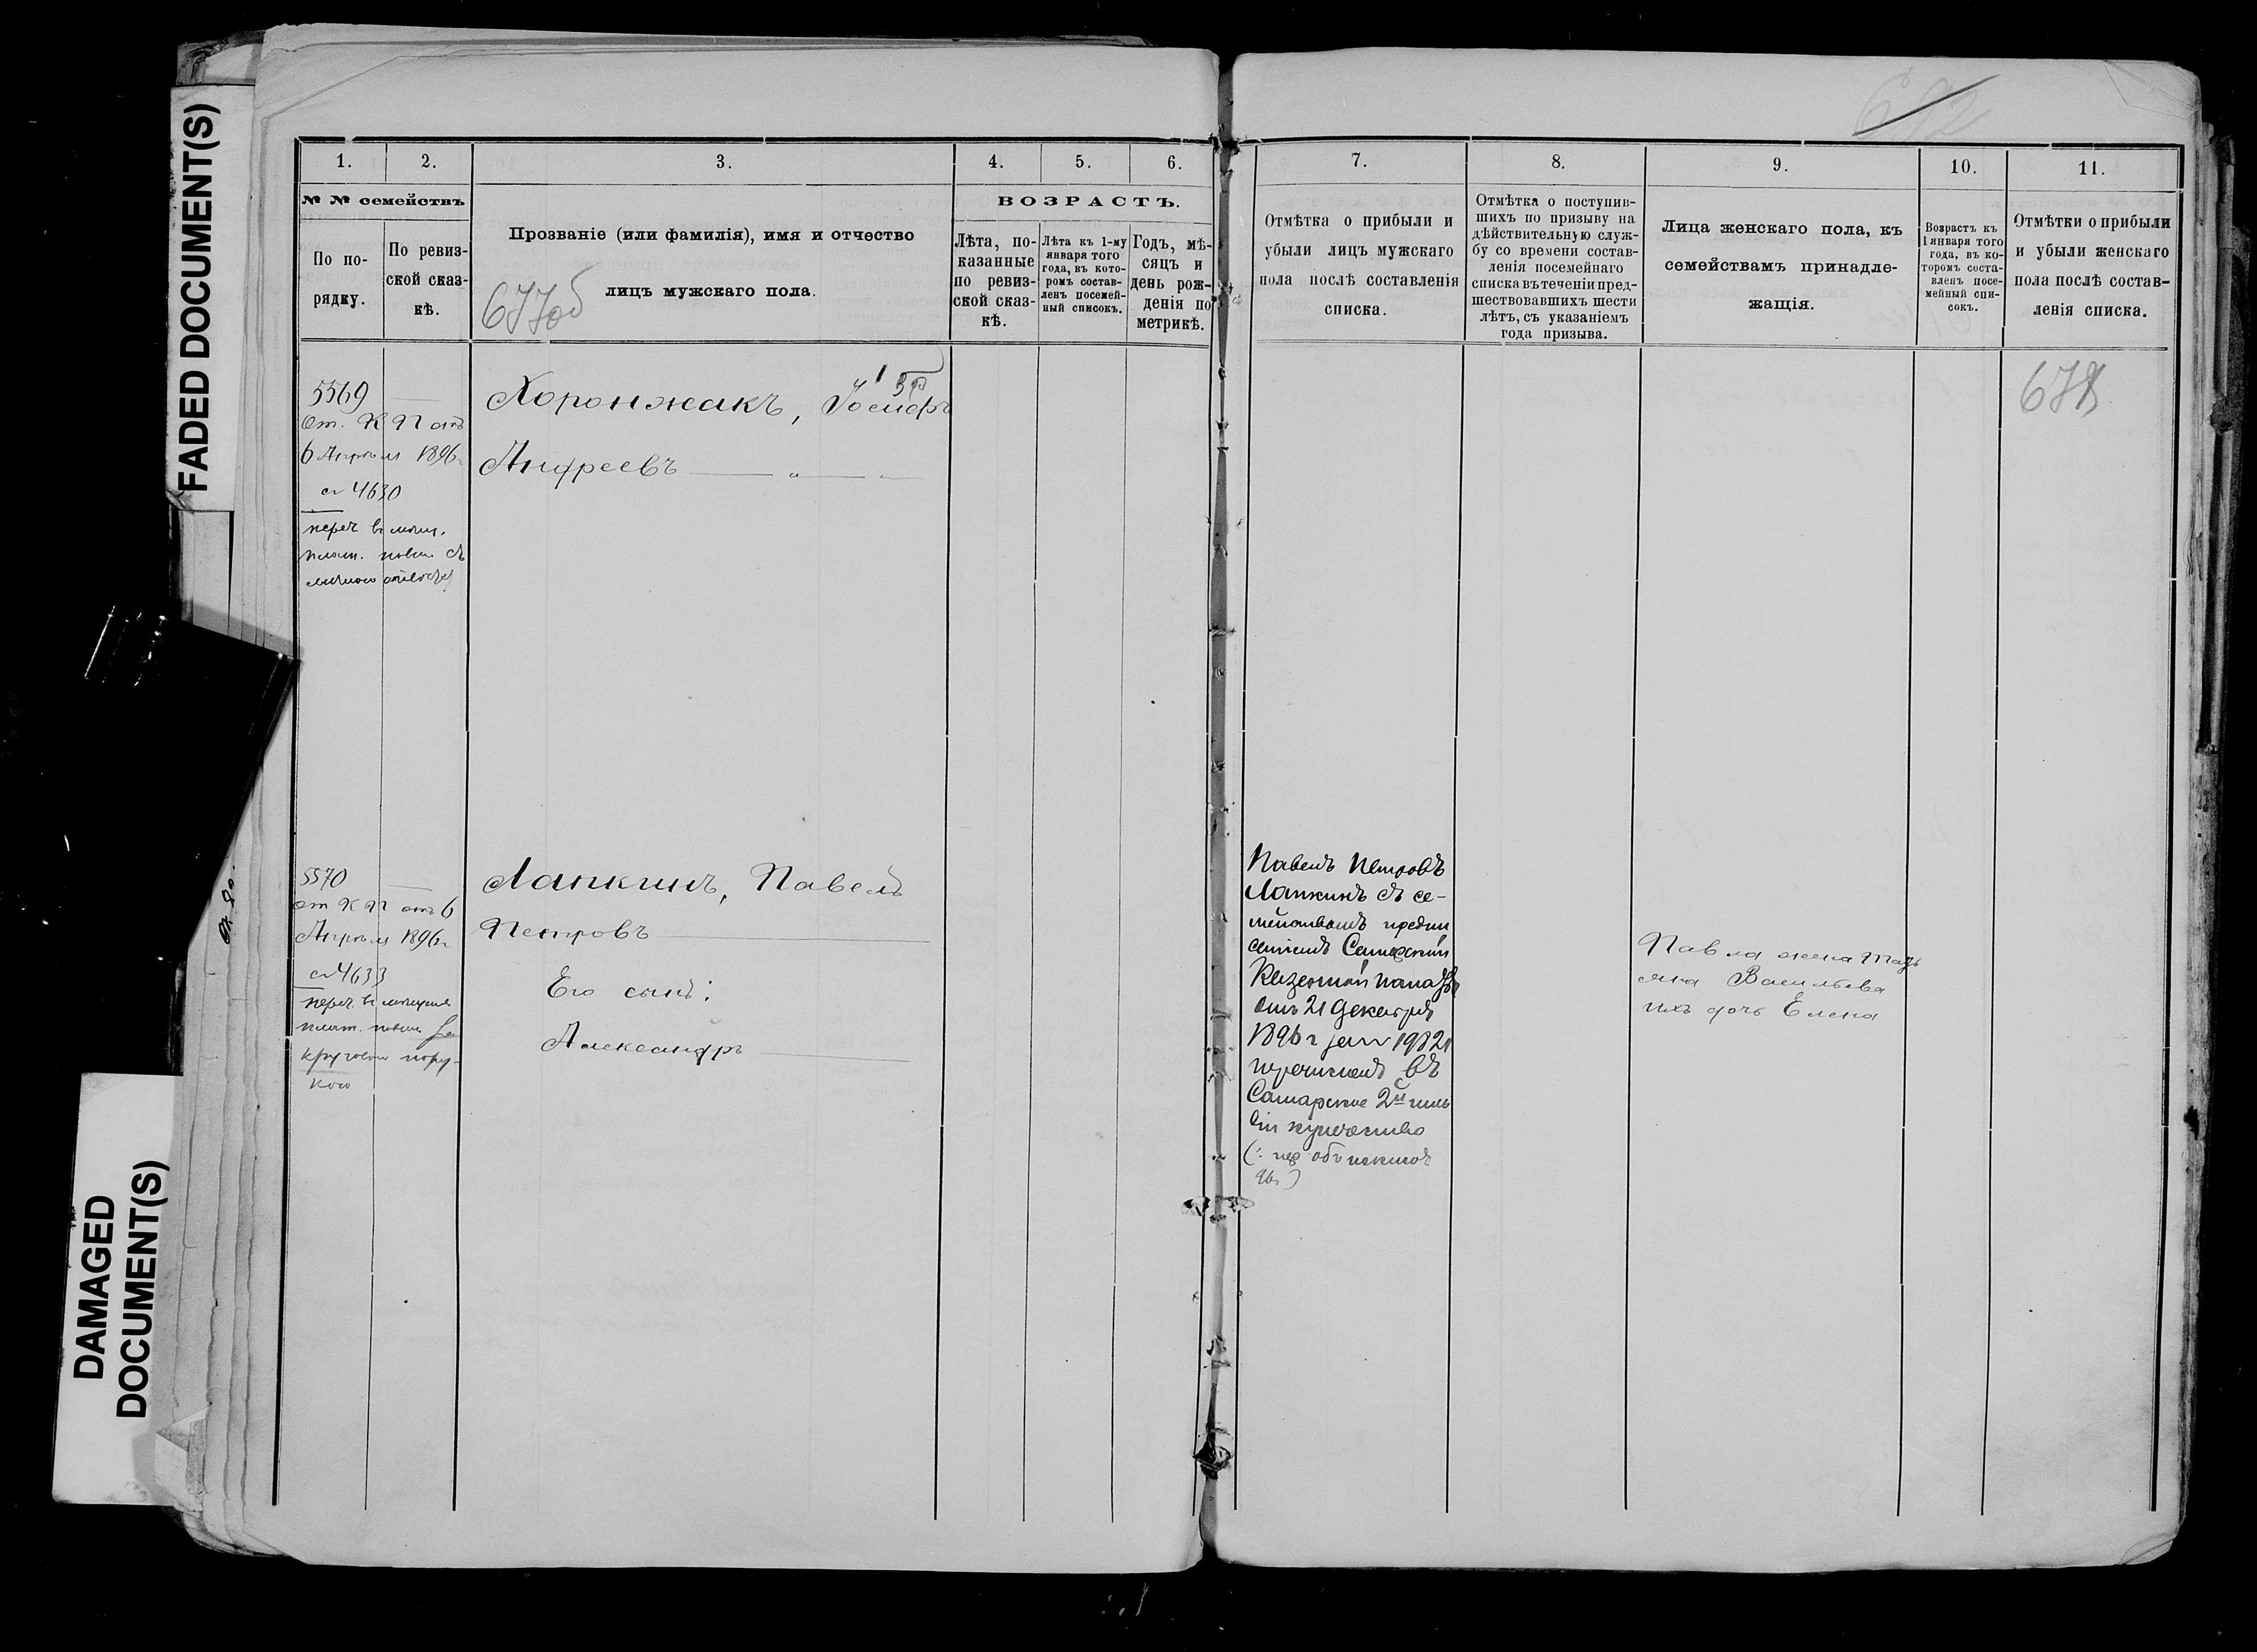 FADED DOCUMENT(S)
DAMAGED
DOCUMENT(S)
1.
2.
3.
4.
5.
6.
№ № семействъ
По по-
рядку.
По ревиз-
ской сказ-
кѣ.
Прозваніе (или фамилія), имя и отчество
лицъ мужскаго пола.
677об
ВОЗРАСТЪ.
Лѣта, по-
казанные
по ревиз-
ской сказ-
кѣ.
Лѣта къ 1-му
января того
года, въ кото-
ромъ состав-
ленъ посемей-
ный списокъ.
Годъ, мѣ-
сяцъ и
день рож-
денія по
метрикѣ.
5569
От. К П отъ
6 Апрѣля 1896г
за № 4630
переч въ
Хоронжакъ, Іосифъ
Андреевъ
5570
от К П отъ 6
Апрѣля 1896г
за № 4633
переч. въ
круговою пору-
кою
Лапкинъ, Павелъ
Петровъ
Его сынъ:
Александръ
7.
8.
9.
10.
11.
Отмѣтка о прибыли и
убыли лицъ мужскаго
пола послѣ составленія
списка.
Отмѣтка о поступив-
шихъ по призыву на
дѣйствительную служ-
бу со времени состав-
ленія посемейнаго
списка въ теченіи пред-
шествовавшихъ шести
лѣтъ, съ указаніемъ
года призыва.
Лица женскаго пола, къ
семействамъ принадле-
жащія.
Возрастъ къ
1 января того
года, въ ко-
торомъ соста-
вленъ посе-
мейный спи-
сокъ.
Отмѣтки о прибыли
и убыли женскаго
пола послѣ состав-
ленія списка.
678
Павелъ Петровъ
Лапкинъ съ се-
мействомъ предпи
саніемъ Самарской
Казенной палаты
отъ 21 декабря
1896 г за № 19821
перечисленъ въ
Самарское 2й гиль
діи купечество
Павла жена Тать
яна Васильева
ихъ дочь Елена